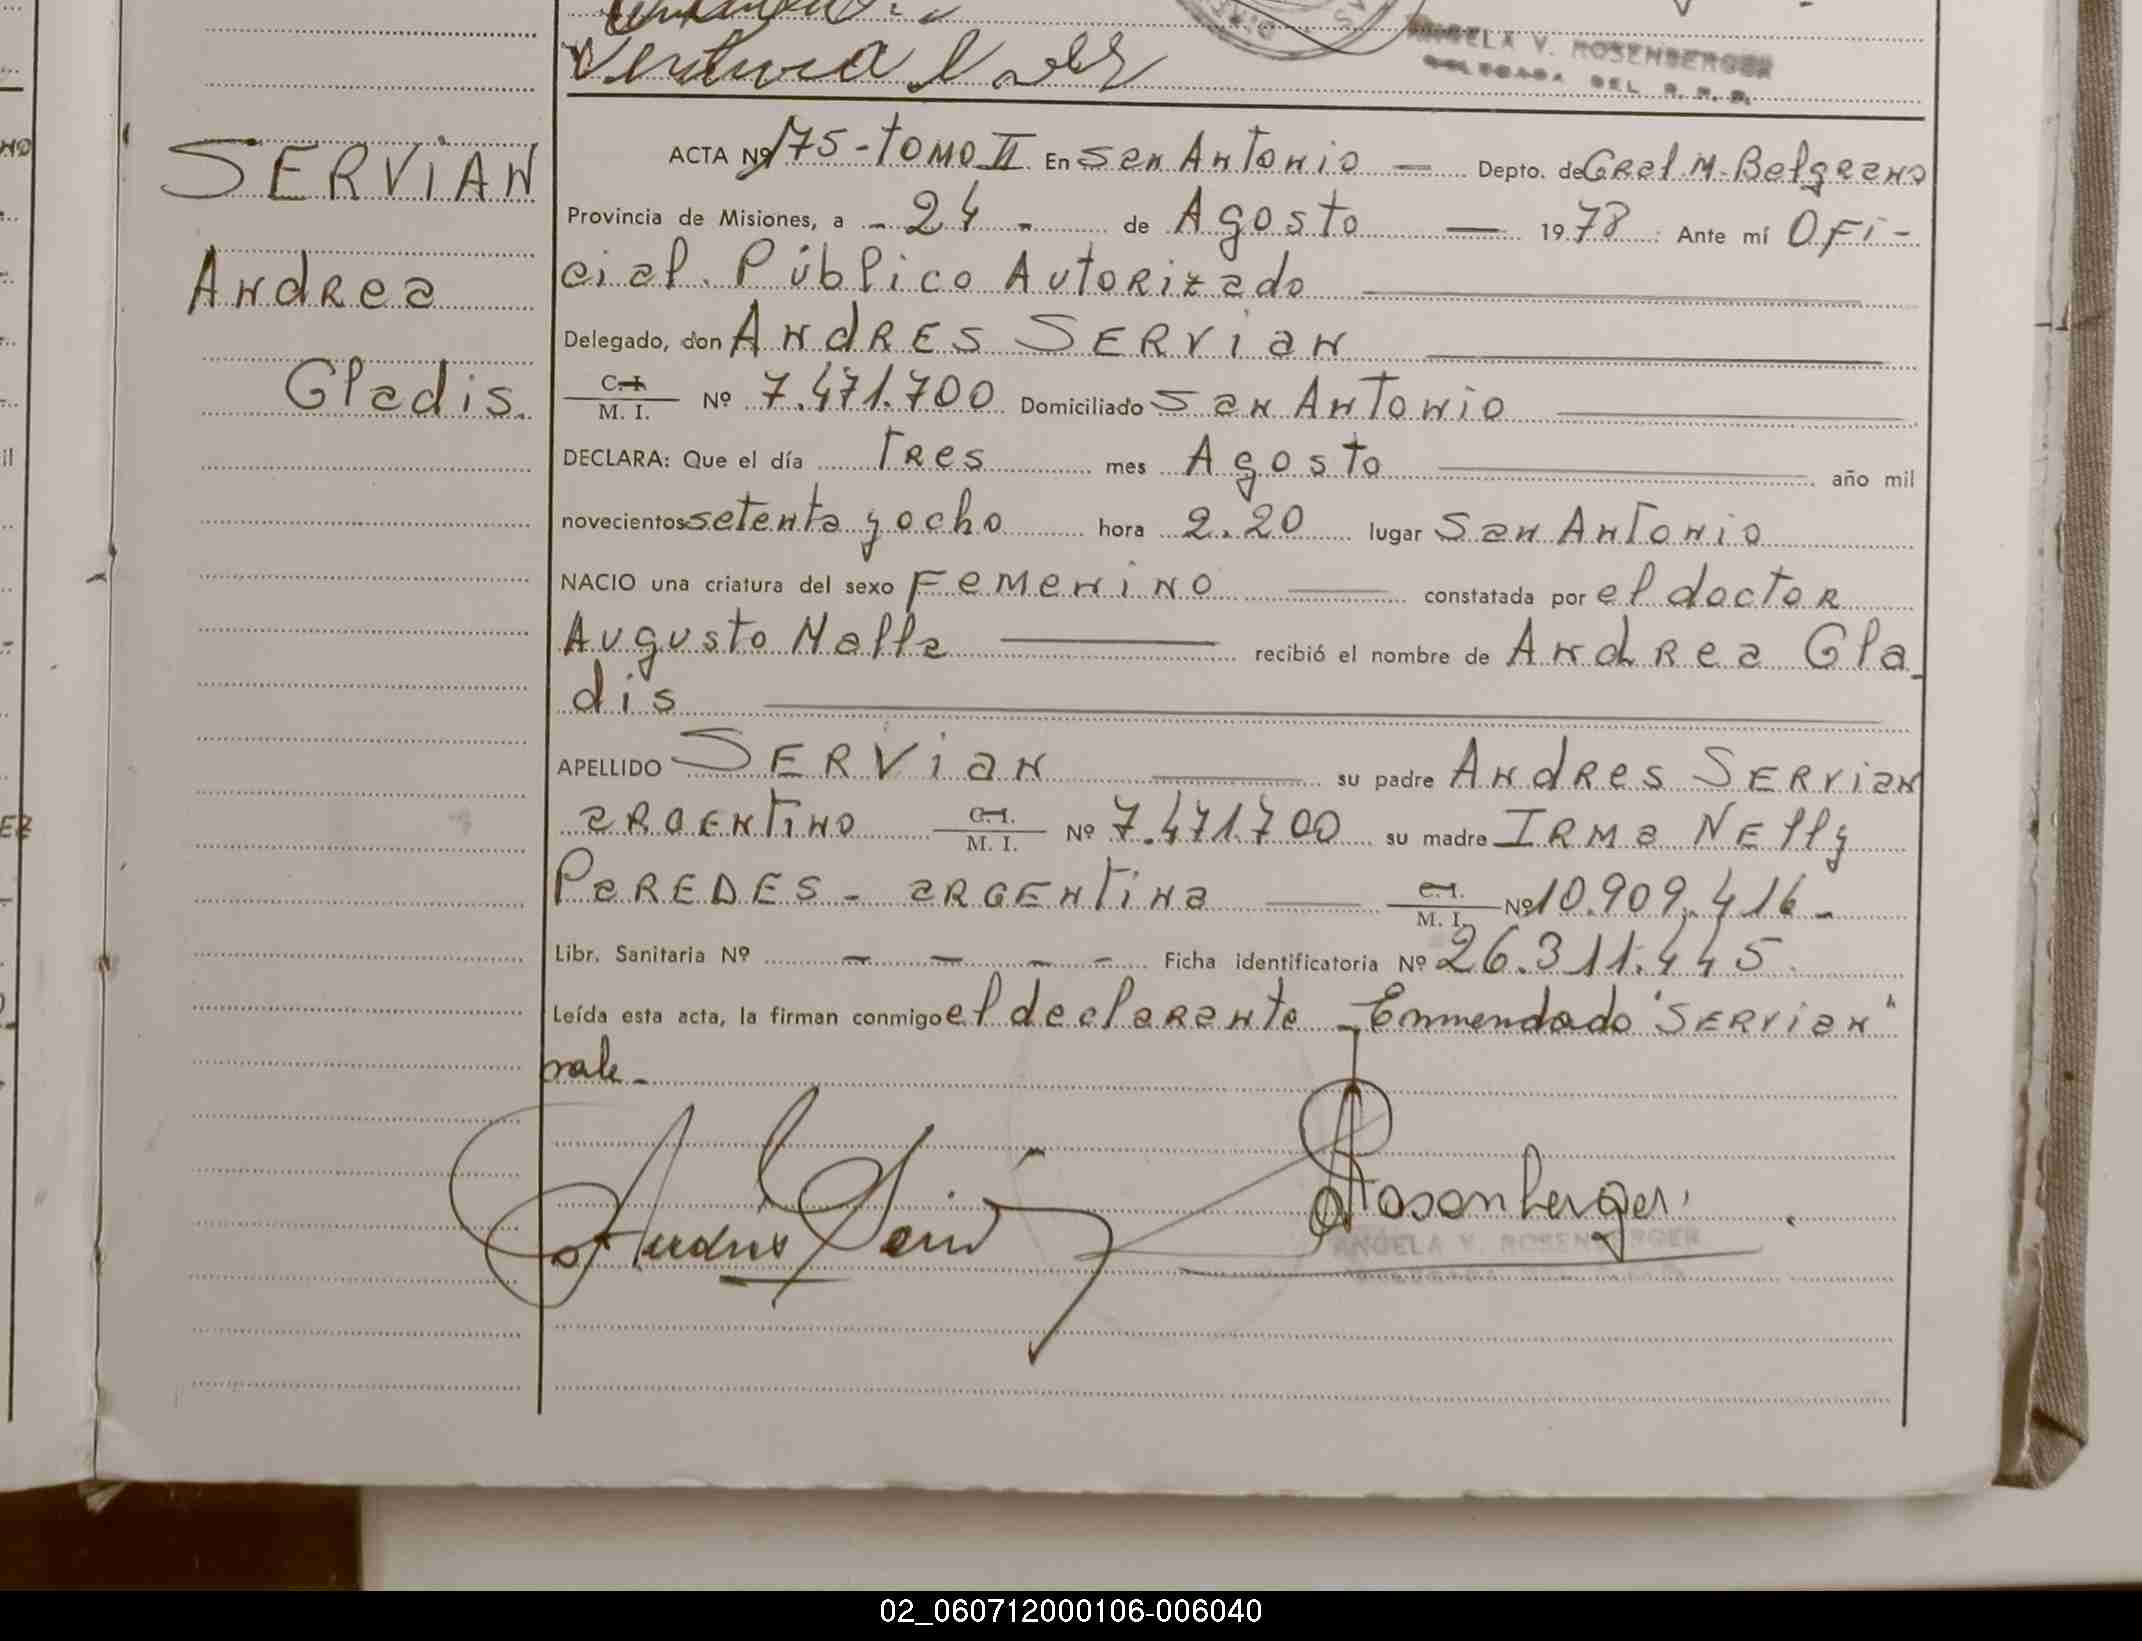 Ventura
ANGELA V. ROSENBERGER
DELEGADA DEL R.
SERVIAN
Andrea
Gladis.
ACTA Nº 175-TOMO II En San Antonio — Depto. de Gral. M. Belgrano
Provincia de Misiones, a - 24 - de Agosto — 1978 Ante mí Ofi-
cial Público Autorizado
Delegado, don ANDRES SERVIAN
C. I. M. I. Nº 7.471.700 Domiciliado San Antonio
DECLARA: Que el día Tres mes Agosto año mil
novecientos setenta y ocho hora 2.20 lugar San Antonio
NACIO una criatura del sexo Femenino constatada por el doctor
Augusto Malla recibió el nombre de Andrea Gla-
dis
APELLIDO SERVIAN su padre Andres SERVIAN
argentino C. I. M. I. Nº 7.471.700 su madre IRMA NELLY
PAREDES - argentina C. I. M. I. Nº 10.909.416-
Libr. Sanitaria Nº - - - - Ficha identificatoria Nº 26.311.445.
Leída esta acta, la firman conmigo el declarante - Enmendado "SERVIAN"
vale-
Andres Servi
Rosenberger
ANGELA V. ROSENBERGER
02_060712000106-006040